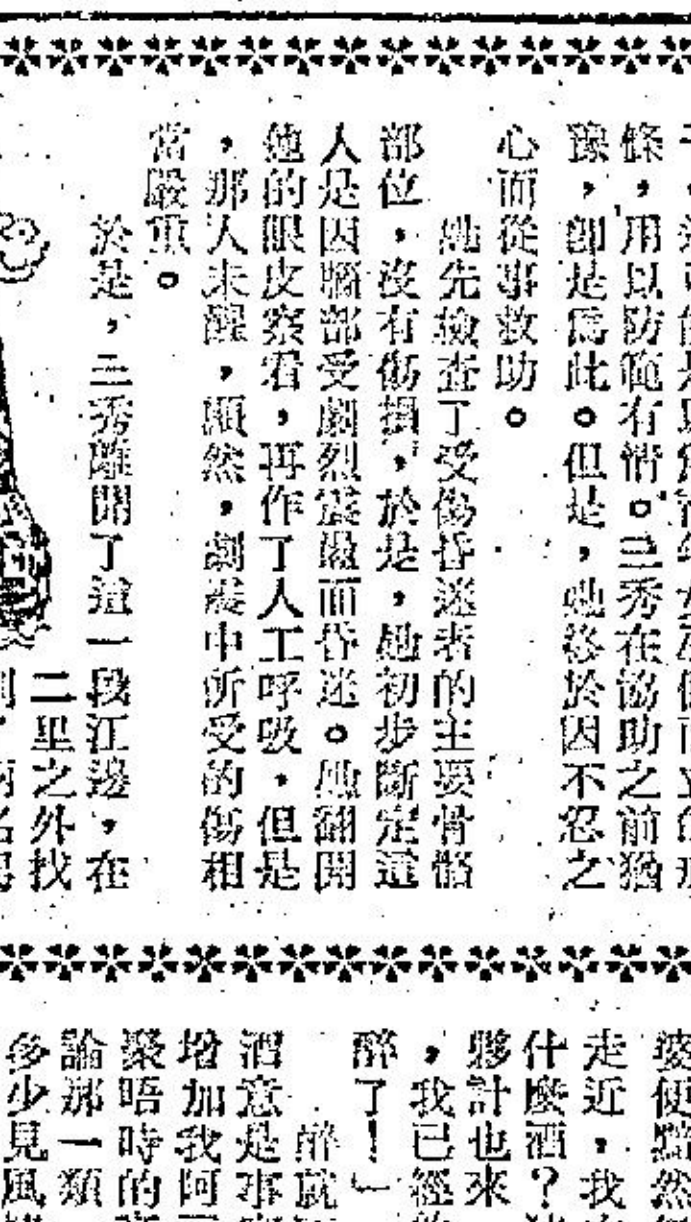 條，用以防範有情。三秀在協助之前猶
豫，卽是爲此。但是，她終於因不忍之
心而從事救助。
她先檢查了受傷昏迷者的主要骨骼
部位，沒有傷損，於是，她初步斷定這
人是因腦部受劇烈震盪而昏迷。她翻開
他的眼皮察看，再作了人工呼吸，但是
，那人未醒，顯然，劇震中所受的傷相
當嚴重。
於是，三秀離開了這一段江邊，在
二里之外找
婆便黯然
走近，我
什麼酒？
夥計也來
，我已經
醉了！」
醉就
酒意是事
增加我阿
聚晤時的
論那一類
多少見風